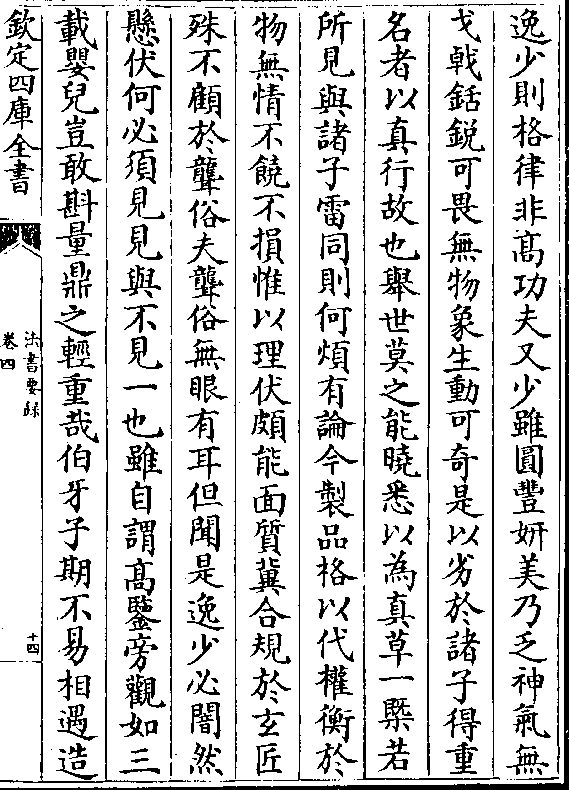 逸少則格律非高功夫又少雖圓豐妍美乃乏神氣無
戈戟銛銳可畏無物象生動可奇是以劣於諸子得重
名者以真行故也舉世莫之能曉悉以為真草一槩若
所見與諸子雷同則何煩有論今製品格以代權衡於
物無情不饒不損惟以理伏頗能面質冀合規於玄匠
殊不顧於聾俗夫聾俗無眼有耳但聞是逸少必闇然
懸伏何必須見見與不見一也雖自謂高鑒旁觀如三
載嬰兒豈敢斟量鼎之輕重哉伯牙子期不易相遇造
欽定四庫全書
法書要録
卷四
十四